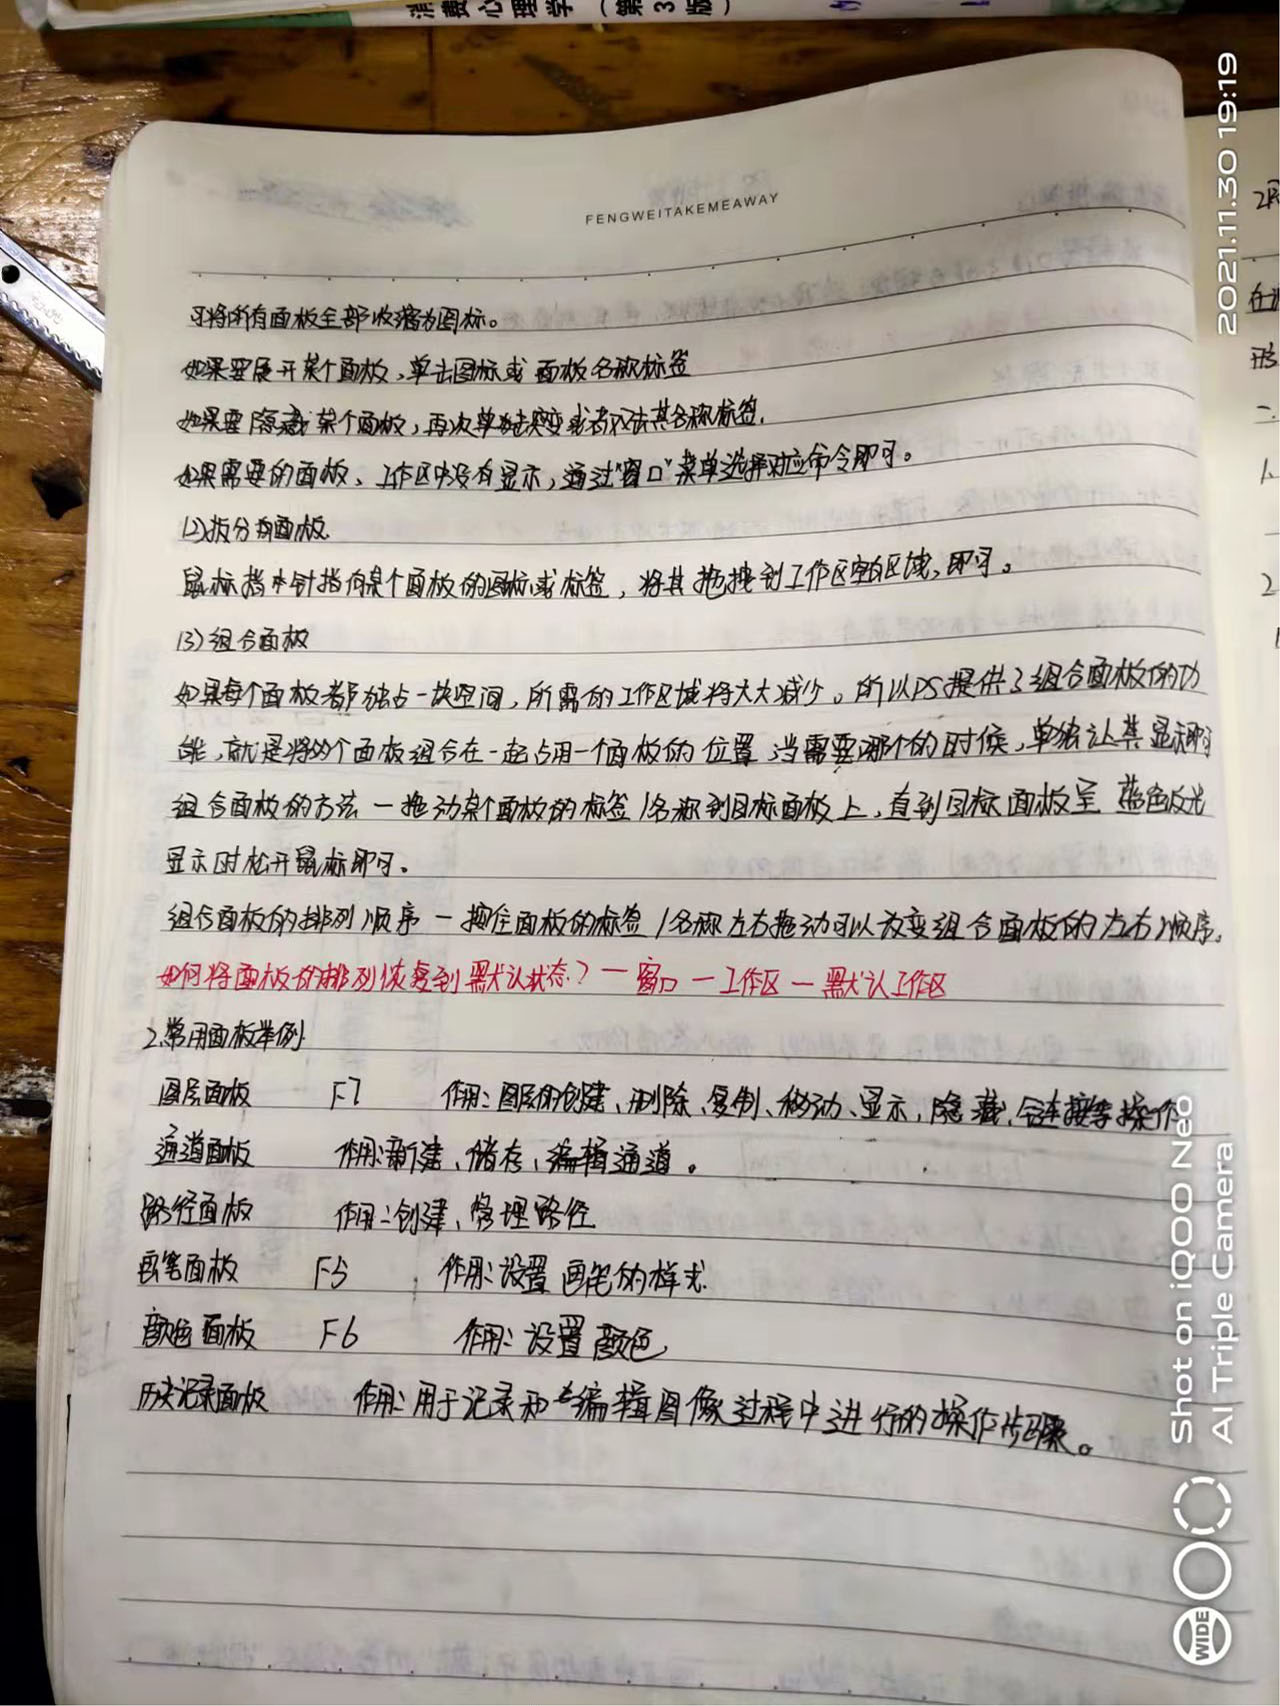 消费心理学（第3版）
FENGWEITAKEMEAWAY
可将所有面板全部收缩为图标。
如果要展开某个面板，单击图标或面板名称标签
如果要隐藏某个面板，再次单击或者双击其名称标签.
如果需要的面板、工作区中没有显示，通过"窗口"菜单选择对应命令即可。
(2)拆分面板
鼠标指针指向某个面板的图标或标签，将其拖拽到工作区空白区域,即可。
(3)组合面板
如果每个面板都独占一块空间，所需的工作区域将大大减少。所以PS提供了组合面板的功
能，就是将多个面板组合在一起占用一个面板的位置,当需要哪个的时候，单独让其显示即可
组合面板的方法一拖动某个面板的标签/名称到目标面板上，直到目标面板呈蓝色反光
显示时松开鼠标即可。
组合面板的排列顺序一按住面板的标签/名称左右拖动可以改变组合面板的左右顺序。
如何将面板的排列恢复到默认状态?一窗口一工作区一默认工作区
2.常用面板举例
图层面板 F7 作用:图层的创建、删除、复制、移动、显示,隐藏、链接等操作
通道面板 作用:新建、储存、编辑通道。
路径面板 作用:创建、管理路径
画笔面板 F5 作用:设置画笔的样式.
颜色面板 F6 作用:设置颜色
历史记录面板 作用:用于记录和编辑图像过程中进行的操作步骤。
2021.11.30 19:19
Shot on iQOO Neo
AI Triple Camera
WIDE